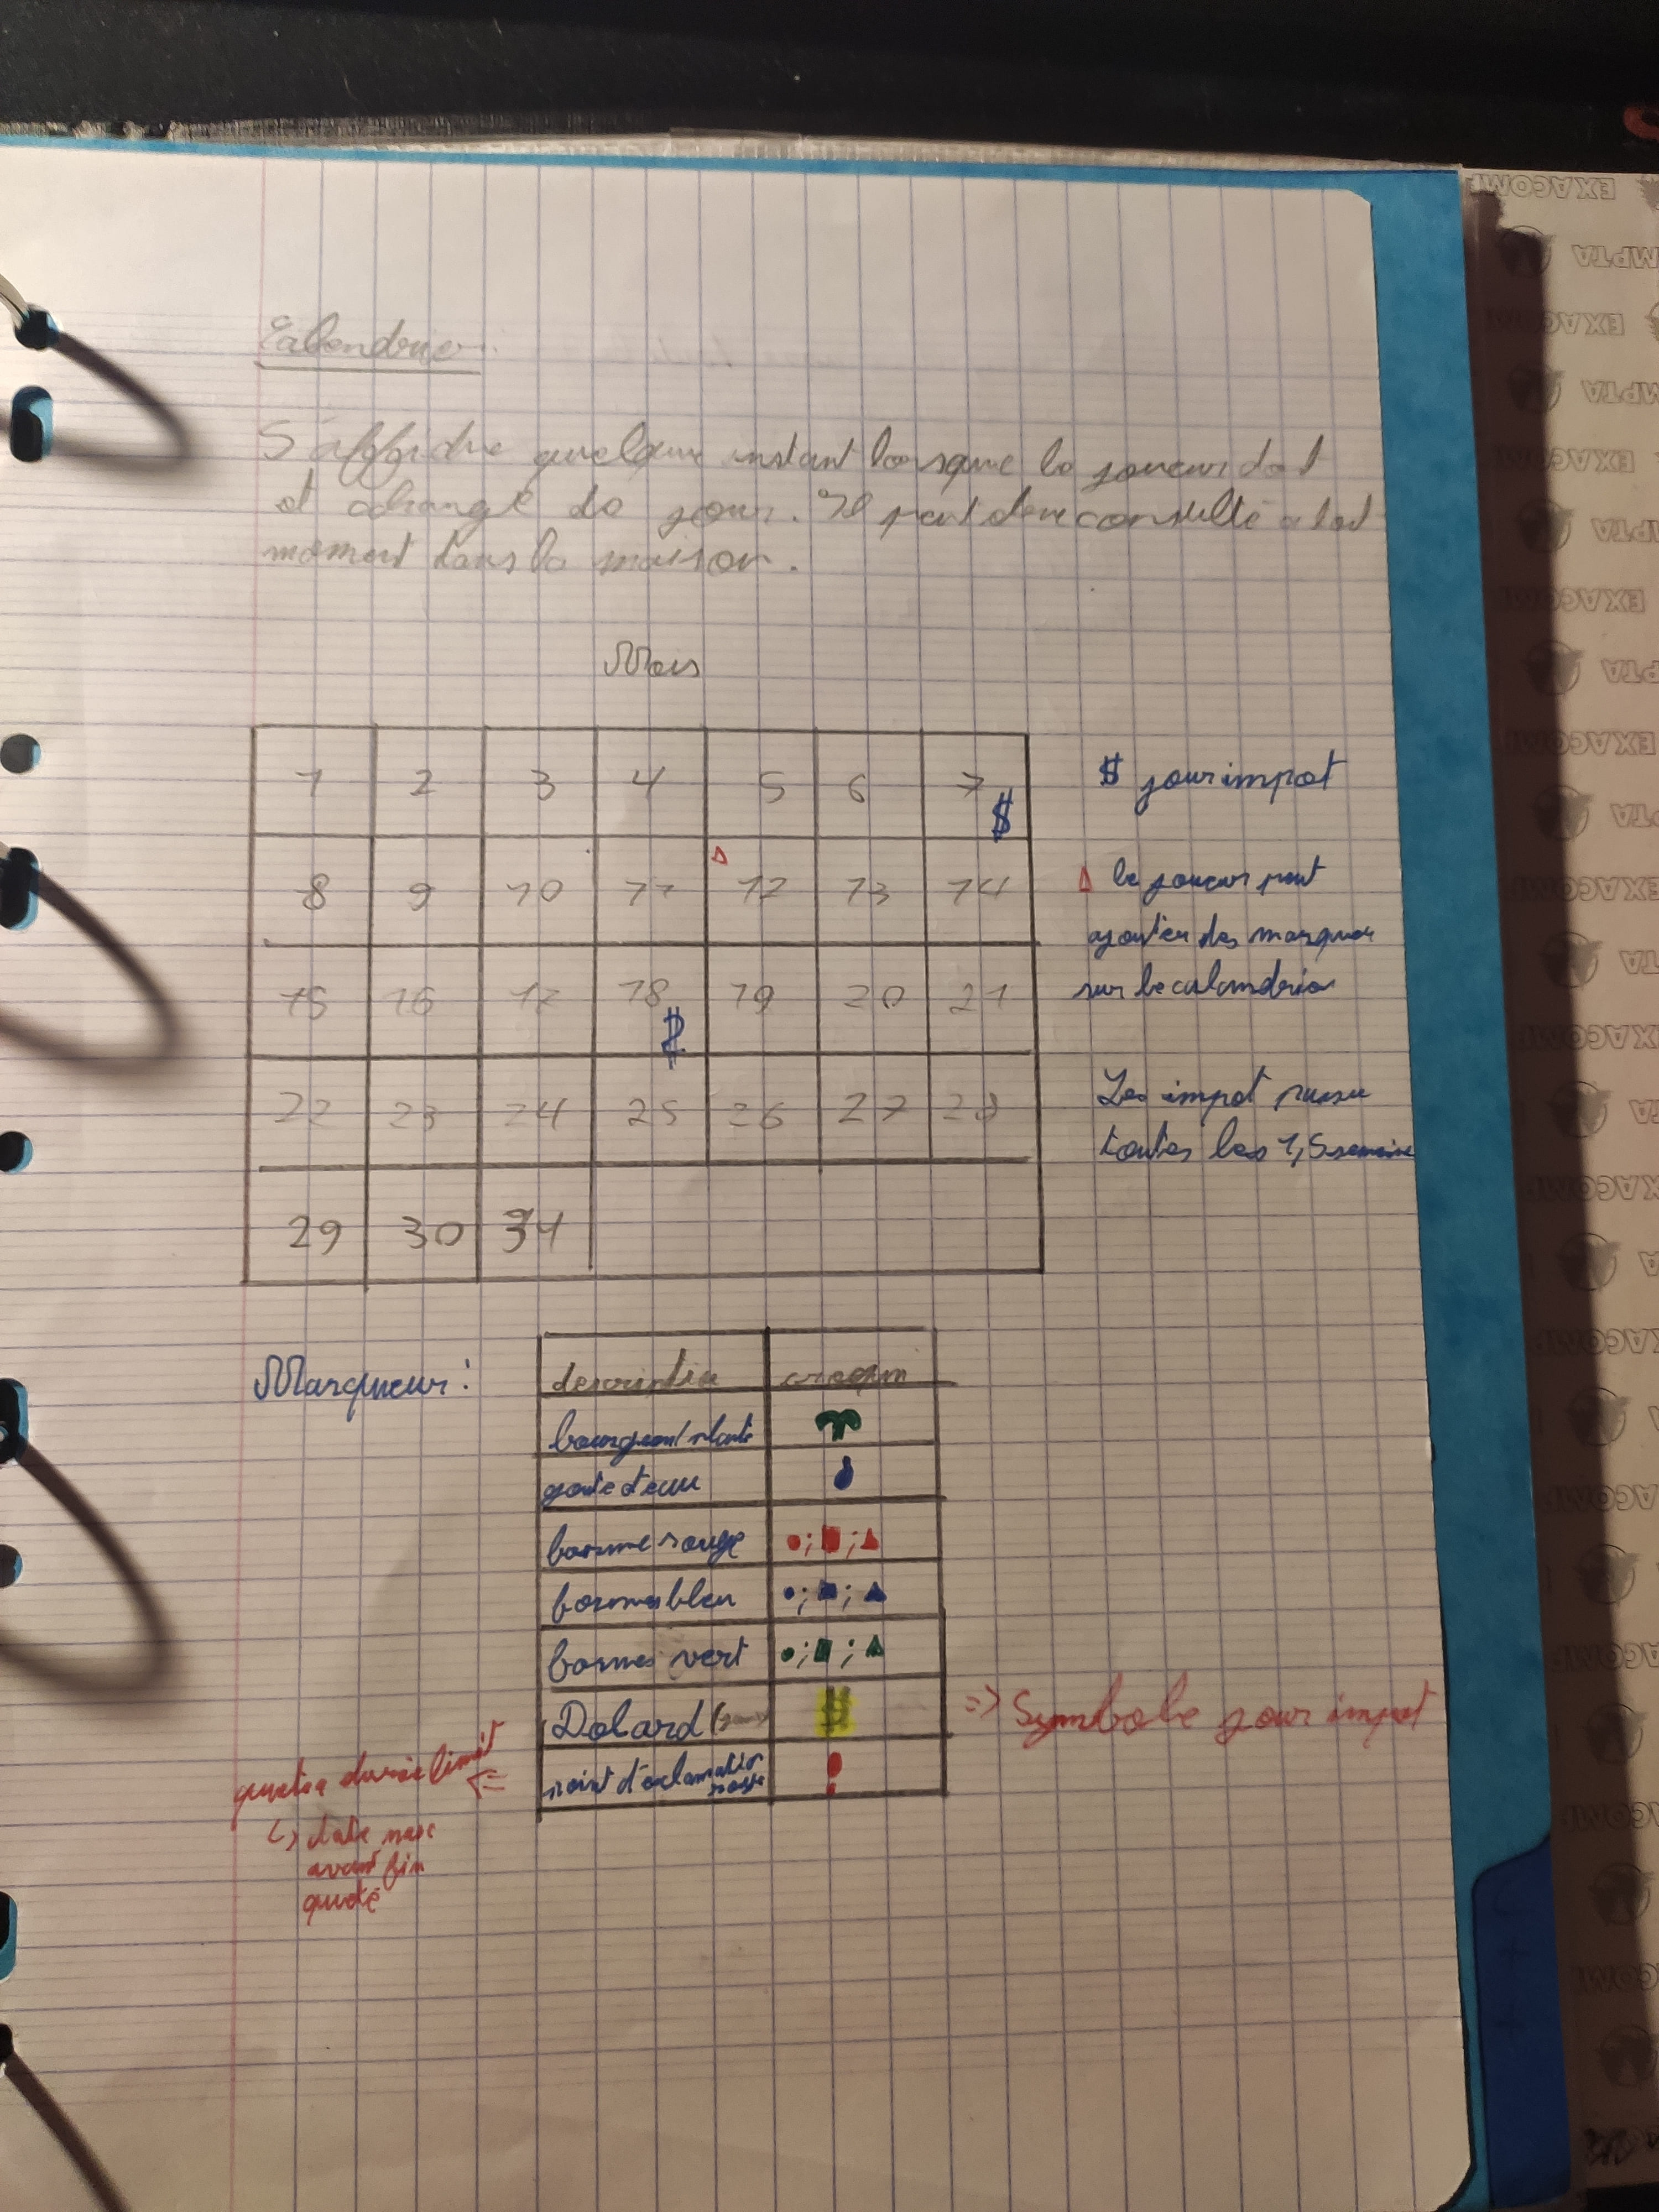 Calendrier
S'affiche quelque instant lorsque le joueur dort
et change de jour. Il peut être consulté a tout
moment dans la maison.
Mois
1 2 3 4 5 6 7 $
8 9 10 11 12 13 14
15 16 17 18 $ 19 20 21
22 23 24 25 26 27 28
29 30 31
$ jour impot
le joueur peut
ajouter des marqueur
sur le calandrier
Les impot
toutes les 1,5 semaine
Marqueur :
description croquis
bourgeon/plante
goute d'eau
forme rouge ; ;
formes bleu ; ;
formes vert ; ;
Dolard $ => Symbole jour impot
point d'exclamation rouge !
durée limit
date
avant fin
EXACOMPTA